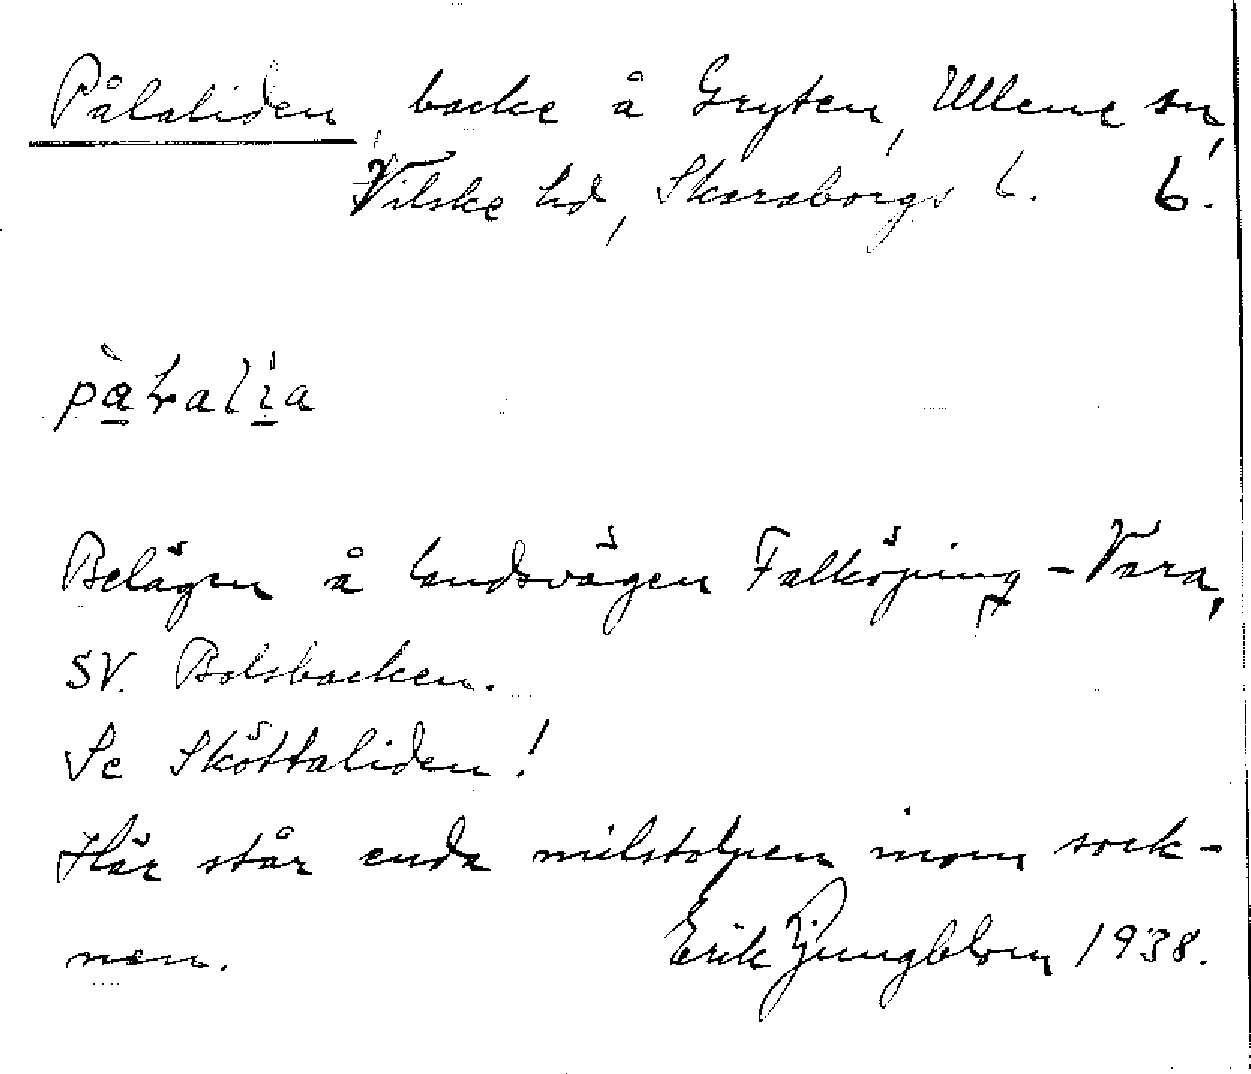 Pålaliden, backe å Gryten, Ullene sn,
Vilske hd, Skaraborgs l. 6.
Belägen å landsvägen Falköping - Vara,
SV. Bolsbacken.
Se Sköttaliden!
Här står enda milstolpen inom sock-
nen. Erik Ljungblom 1938.